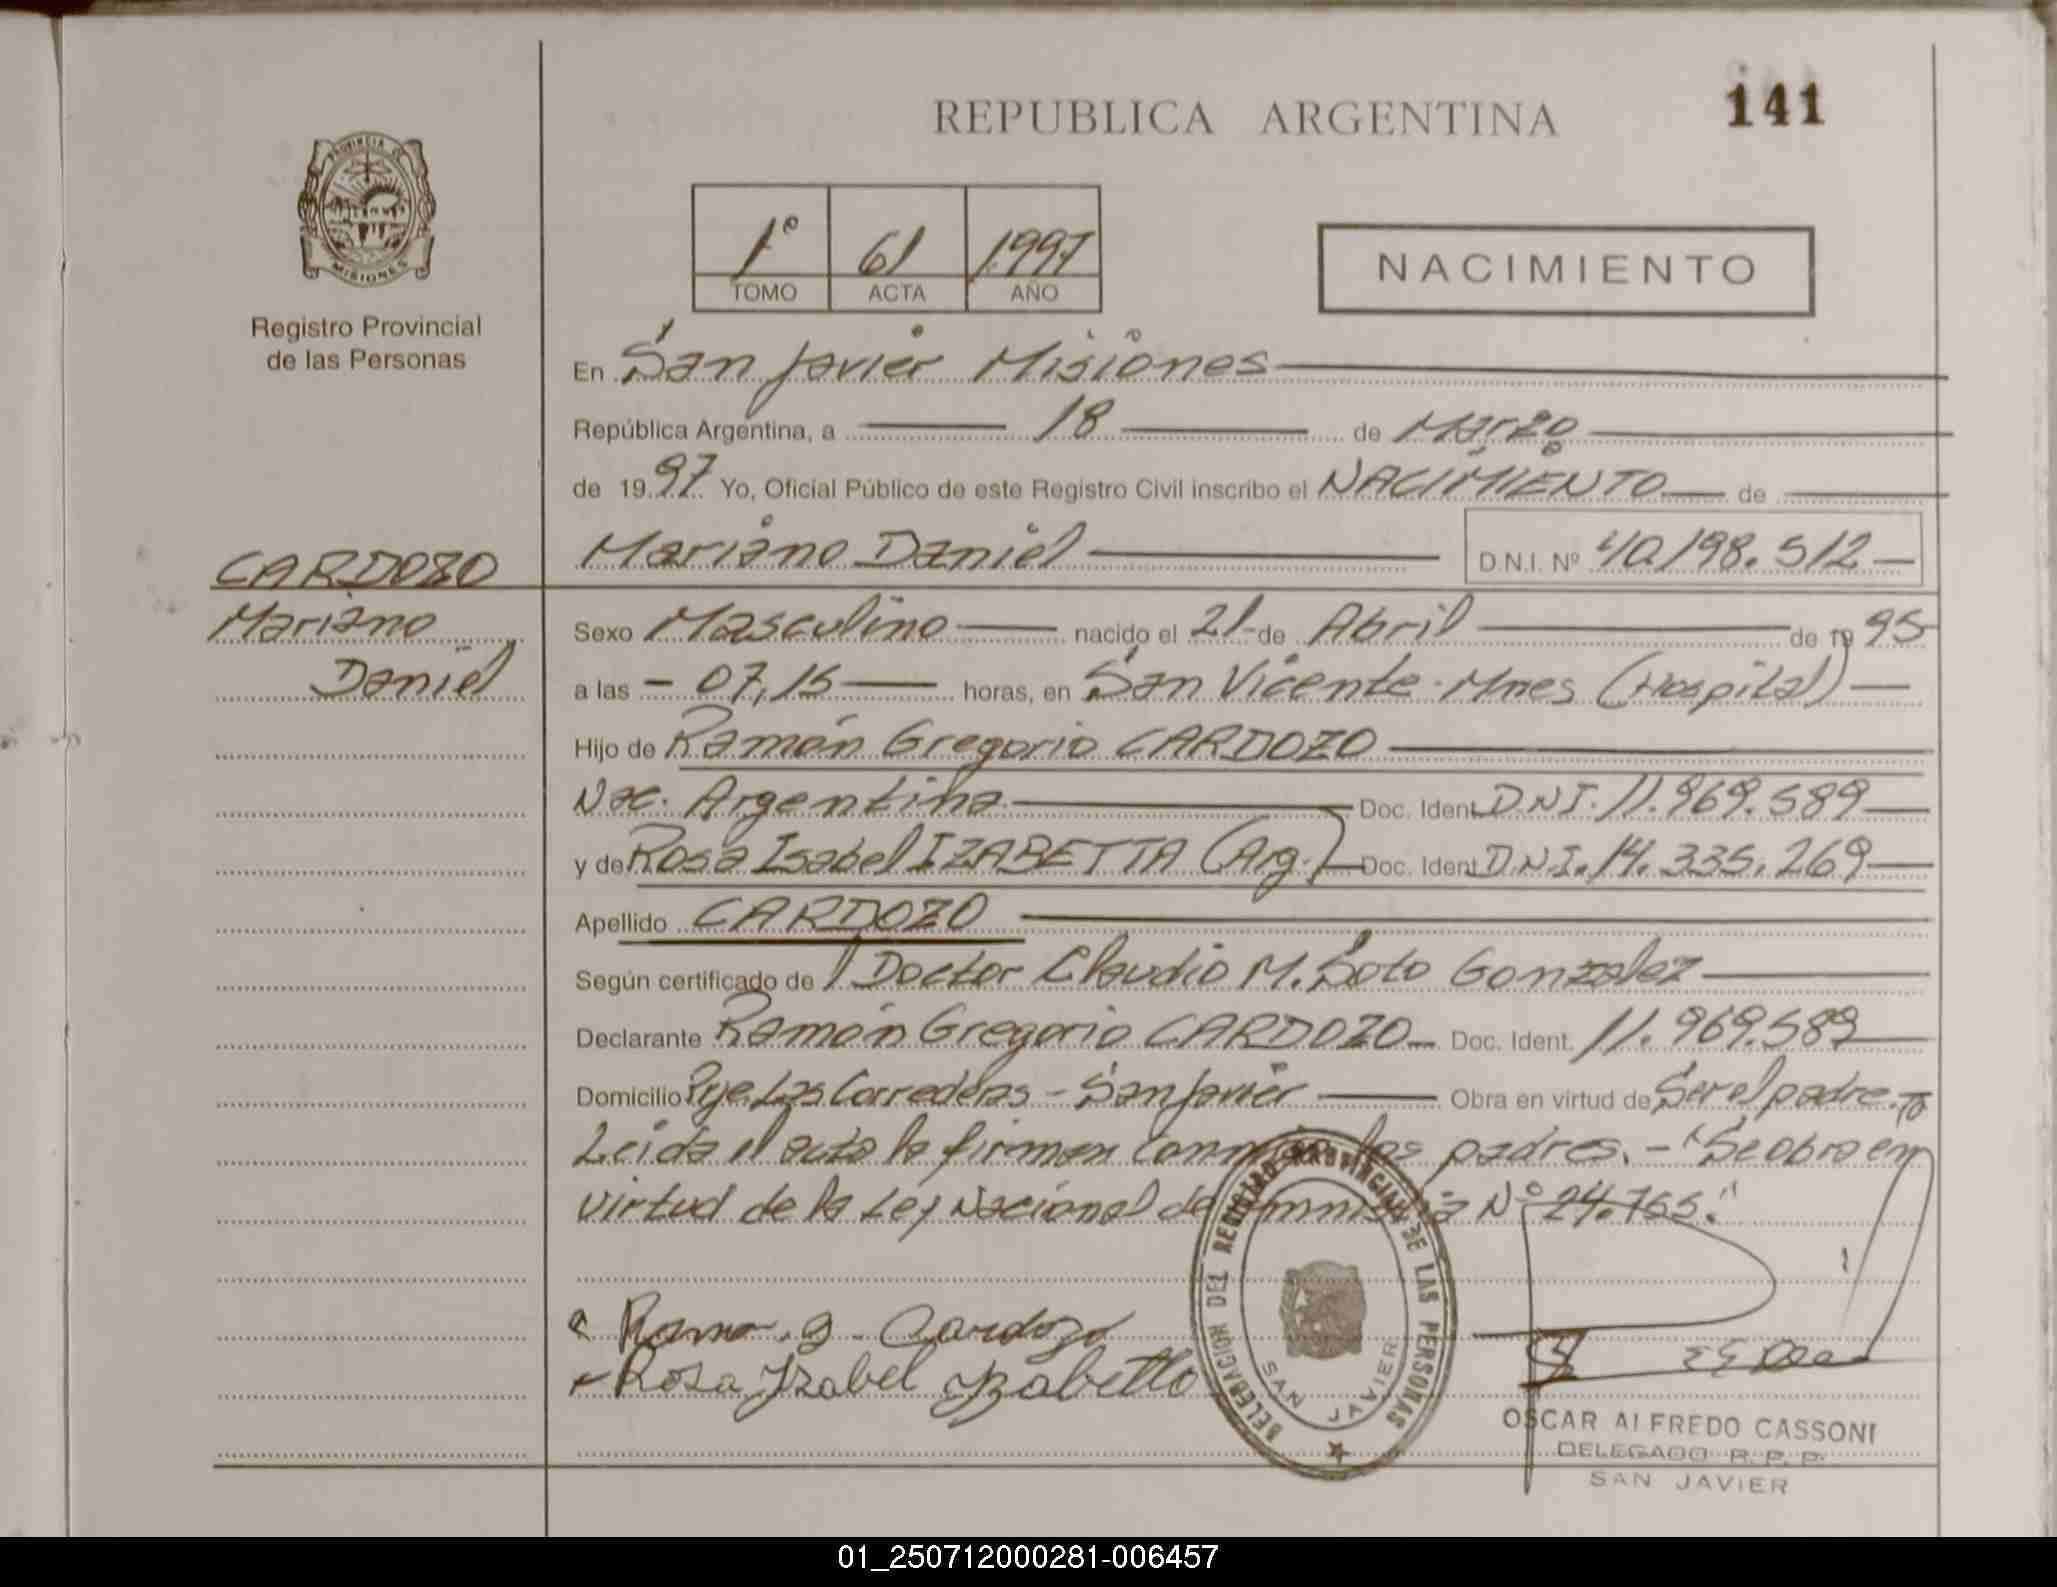 REPUBLICA ARGENTINA
141
PROVINCIA DE
MISIONES
Registro Provincial
de las Personas
1º 61 1997
TOMO ACTA AÑO
NACIMIENTO
En San Javier Misiones
República Argentina, a 18 de Marzo
de 1997 Yo, Oficial Público de este Registro Civil inscribo el NACIMIENTO de
Mariano Daniel D.N.I. Nº 40.198.512
CARDOZO
Mariano
Daniel
Sexo Masculino nacido el 21 de Abril de 1995
a las 07,15 horas, en San Vicente - Mnes (Hospital)
Hijo de Ramón Gregorio CARDOZO
Nac. Argentina Doc. Ident. D.N.I. 11.969.589
y de Rosa Isabel IZABETTA (Arg.) Doc. Ident. D.N.I. 14.335.269
Apellido CARDOZO
Según certificado de Doctor Claudio M. Soto Gonzalez
Declarante Ramón Gregorio CARDOZO Doc. Ident. 11.969.589
Domicilio Pje. Las Correderas - San Javier Obra en virtud de Ser el padre.
Leida el acta la firman los padres. - "Se obra en
virtud de la Ley Nacional de Amnistia Nº 24.755."
Ramon. G. Cardozo
Rosa Izabel Izabetta
DELEGACION DEL REGISTRO PROVINCIAL DE LAS PERSONAS
SAN JAVIER
OSCAR ALFREDO CASSONI
DELEGADO R. P. P.
SAN JAVIER
01_250712000281-006457